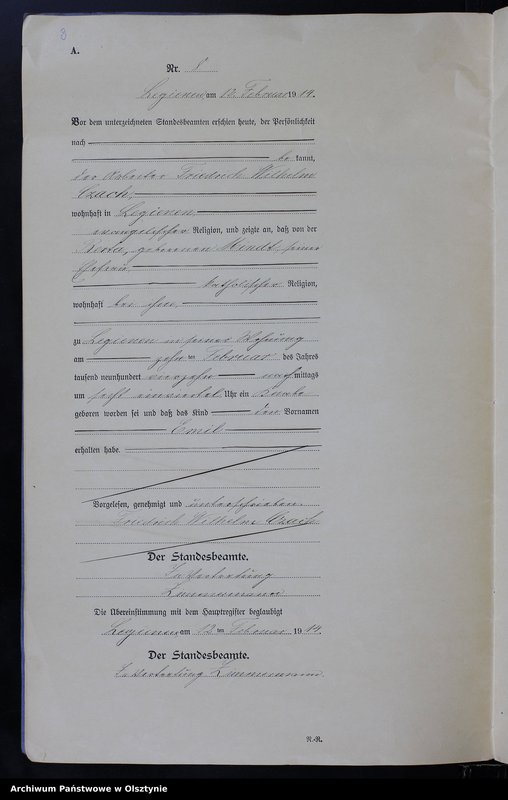 3
A.
Nr. 8
Legienen am 12. Februar 1914.
Vor dem unterzeichneten Standesbeamten erschien heute, der Persönlichkeit
nach
be kannt,
der Arbeiter Friedrich Wilhelm
Czach,
wohnhaft in Legienen,
evangelischer Religion, und zeigte an, daß von der
geborenen seiner
Ehefrau,
katholischer Religion,
wohnhaft bei ihm,
zu Legienen in seiner Wohnung
am zehn ten Februar des Jahres
tausend neunhundert vierzehn nachmittags
um Uhr ein Knabe
geboren worden sei und daß das Kind den Vornamen
Emil
erhalten habe.
Vorgelesen, genehmigt und unterschrieben
Friedrich Wilhelm Czach
Der Standesbeamte.
In Vertretung
Zimmermann
Die Übereinstimmung mit dem Hauptregister beglaubigt
Legienen am 12 ten Februar 1914.
Der Standesbeamte.
In Vertretung Zimmermann.
R.-R.
Archiwum Państwowe w Olsztynie